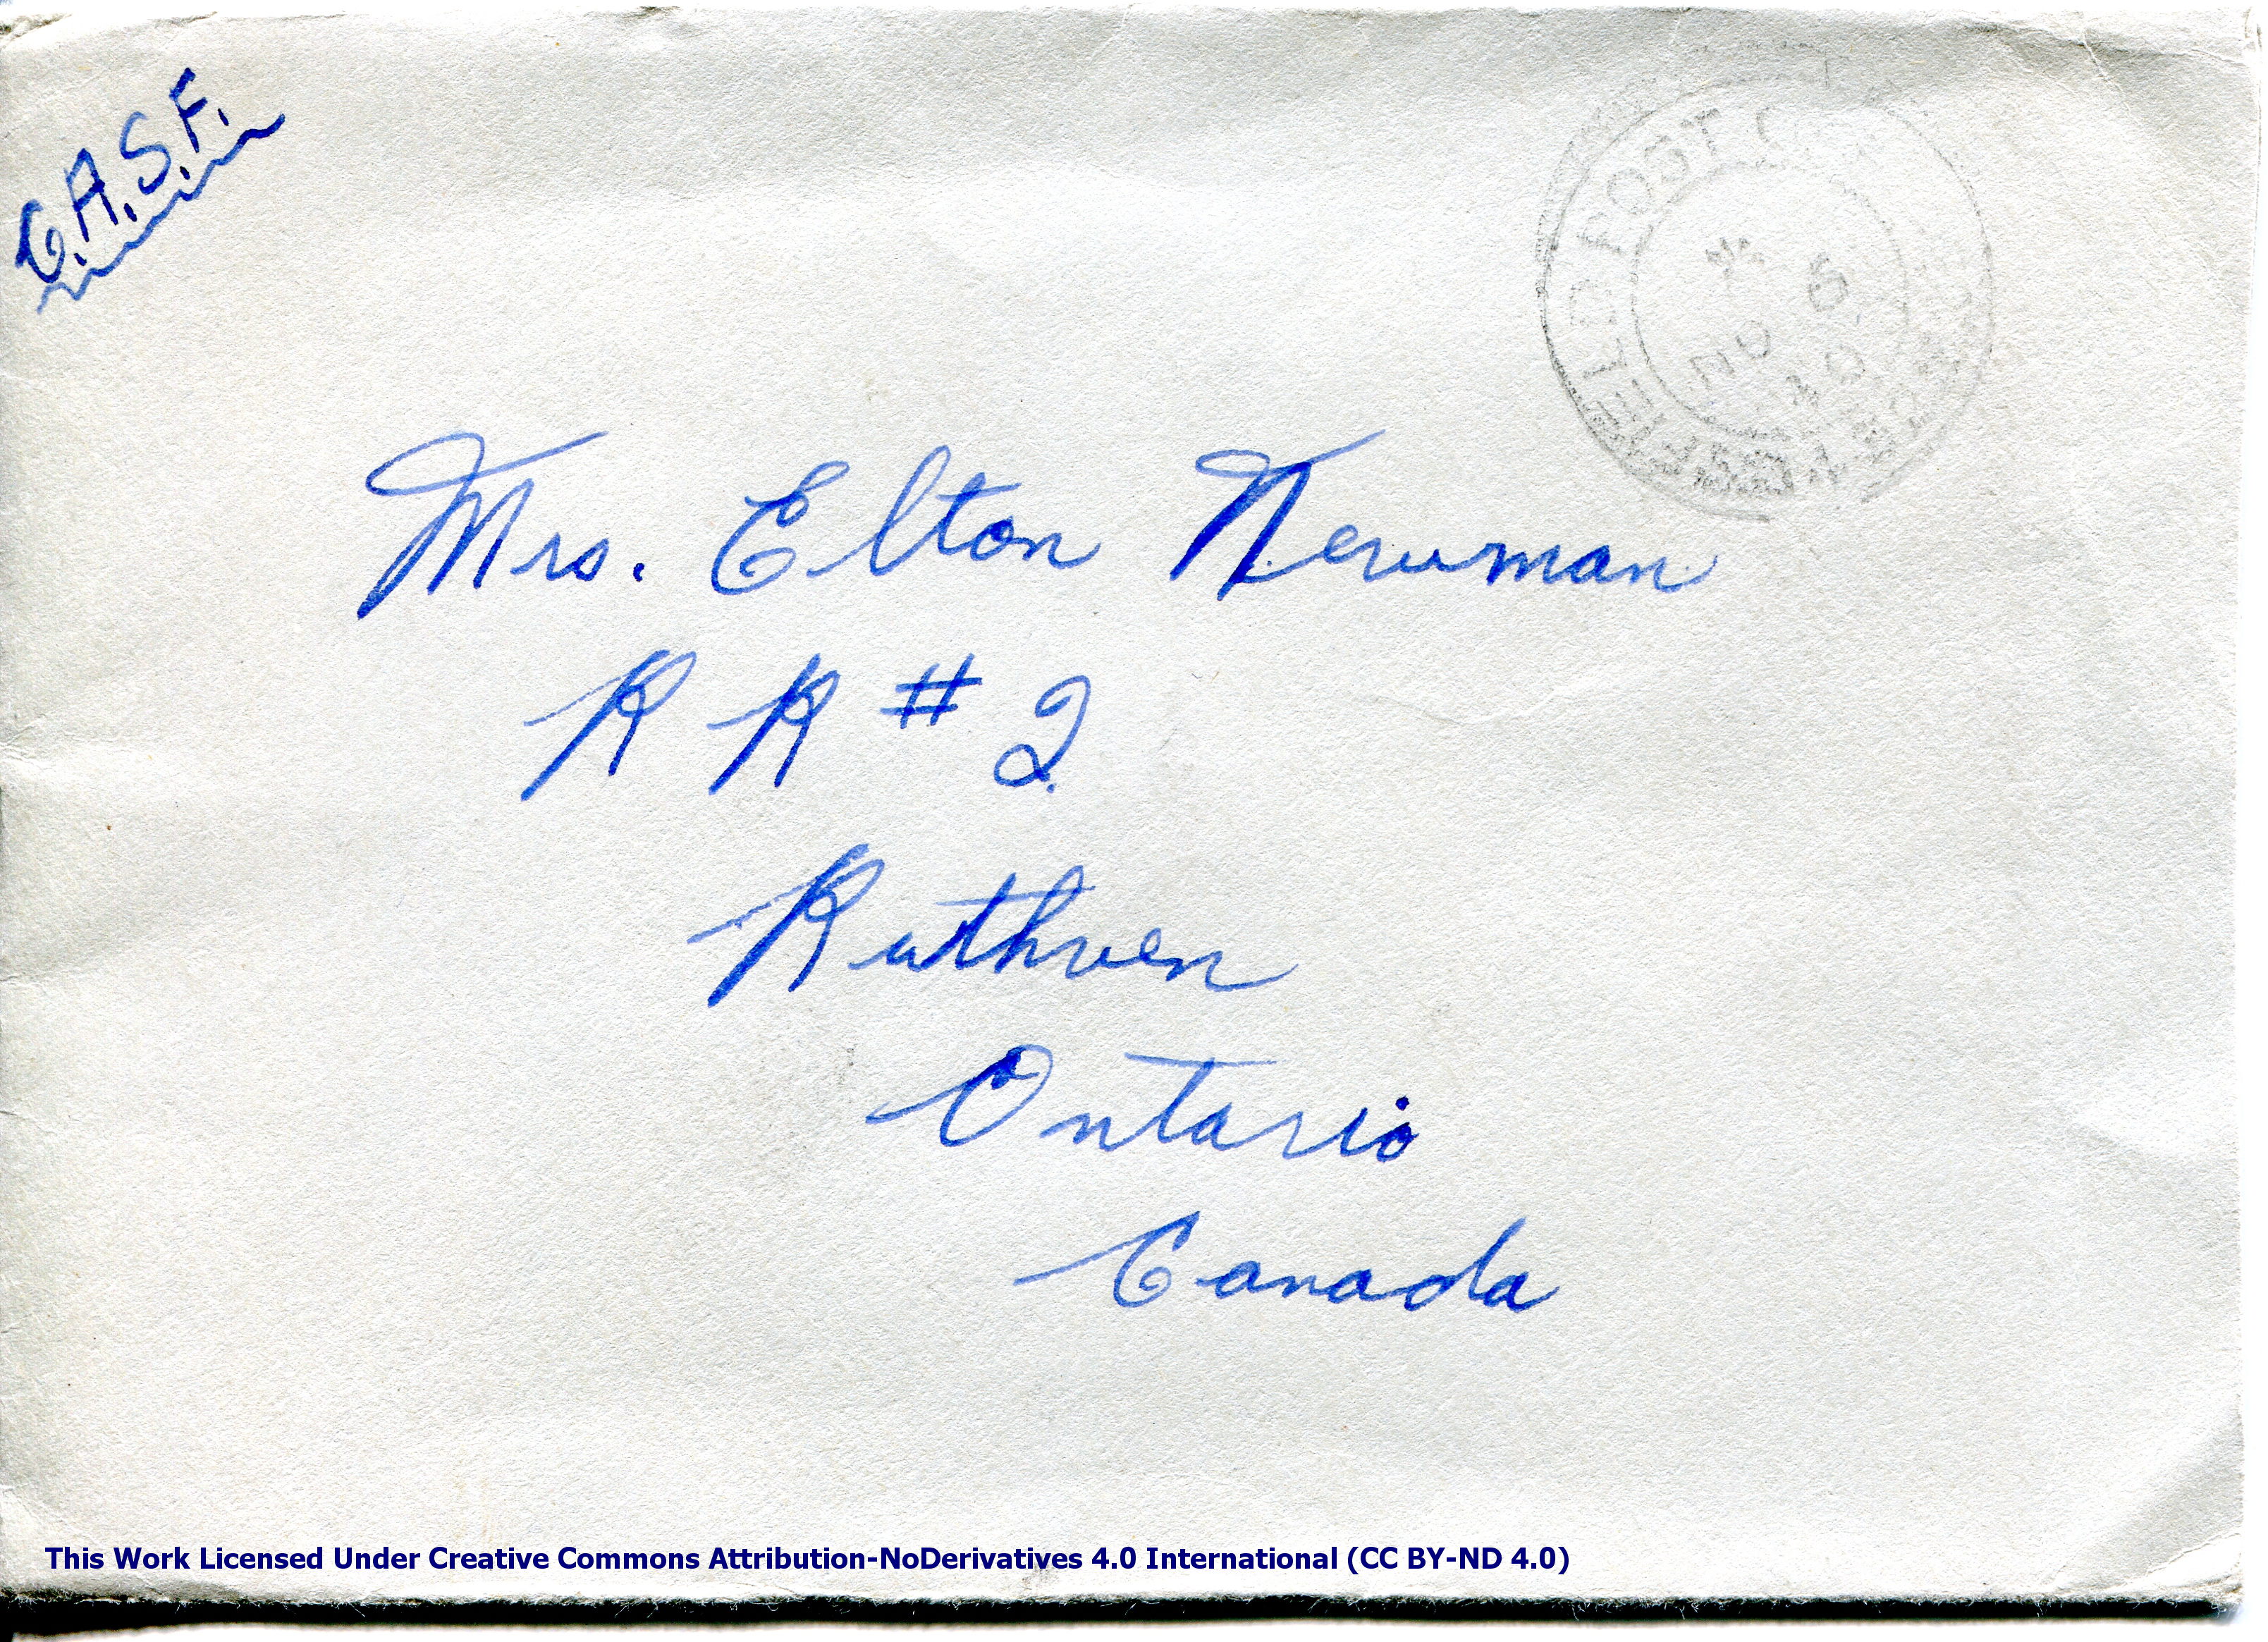 C.A.S.F.
FIELD POST
6
40
Mrs. Elton Newman
R R # 2
Ruthven
Ontario
Canada
This Work Licensed Under Creative Commons Attribution-NoDerivatives 4.0 International (CC BY-ND 4.0)